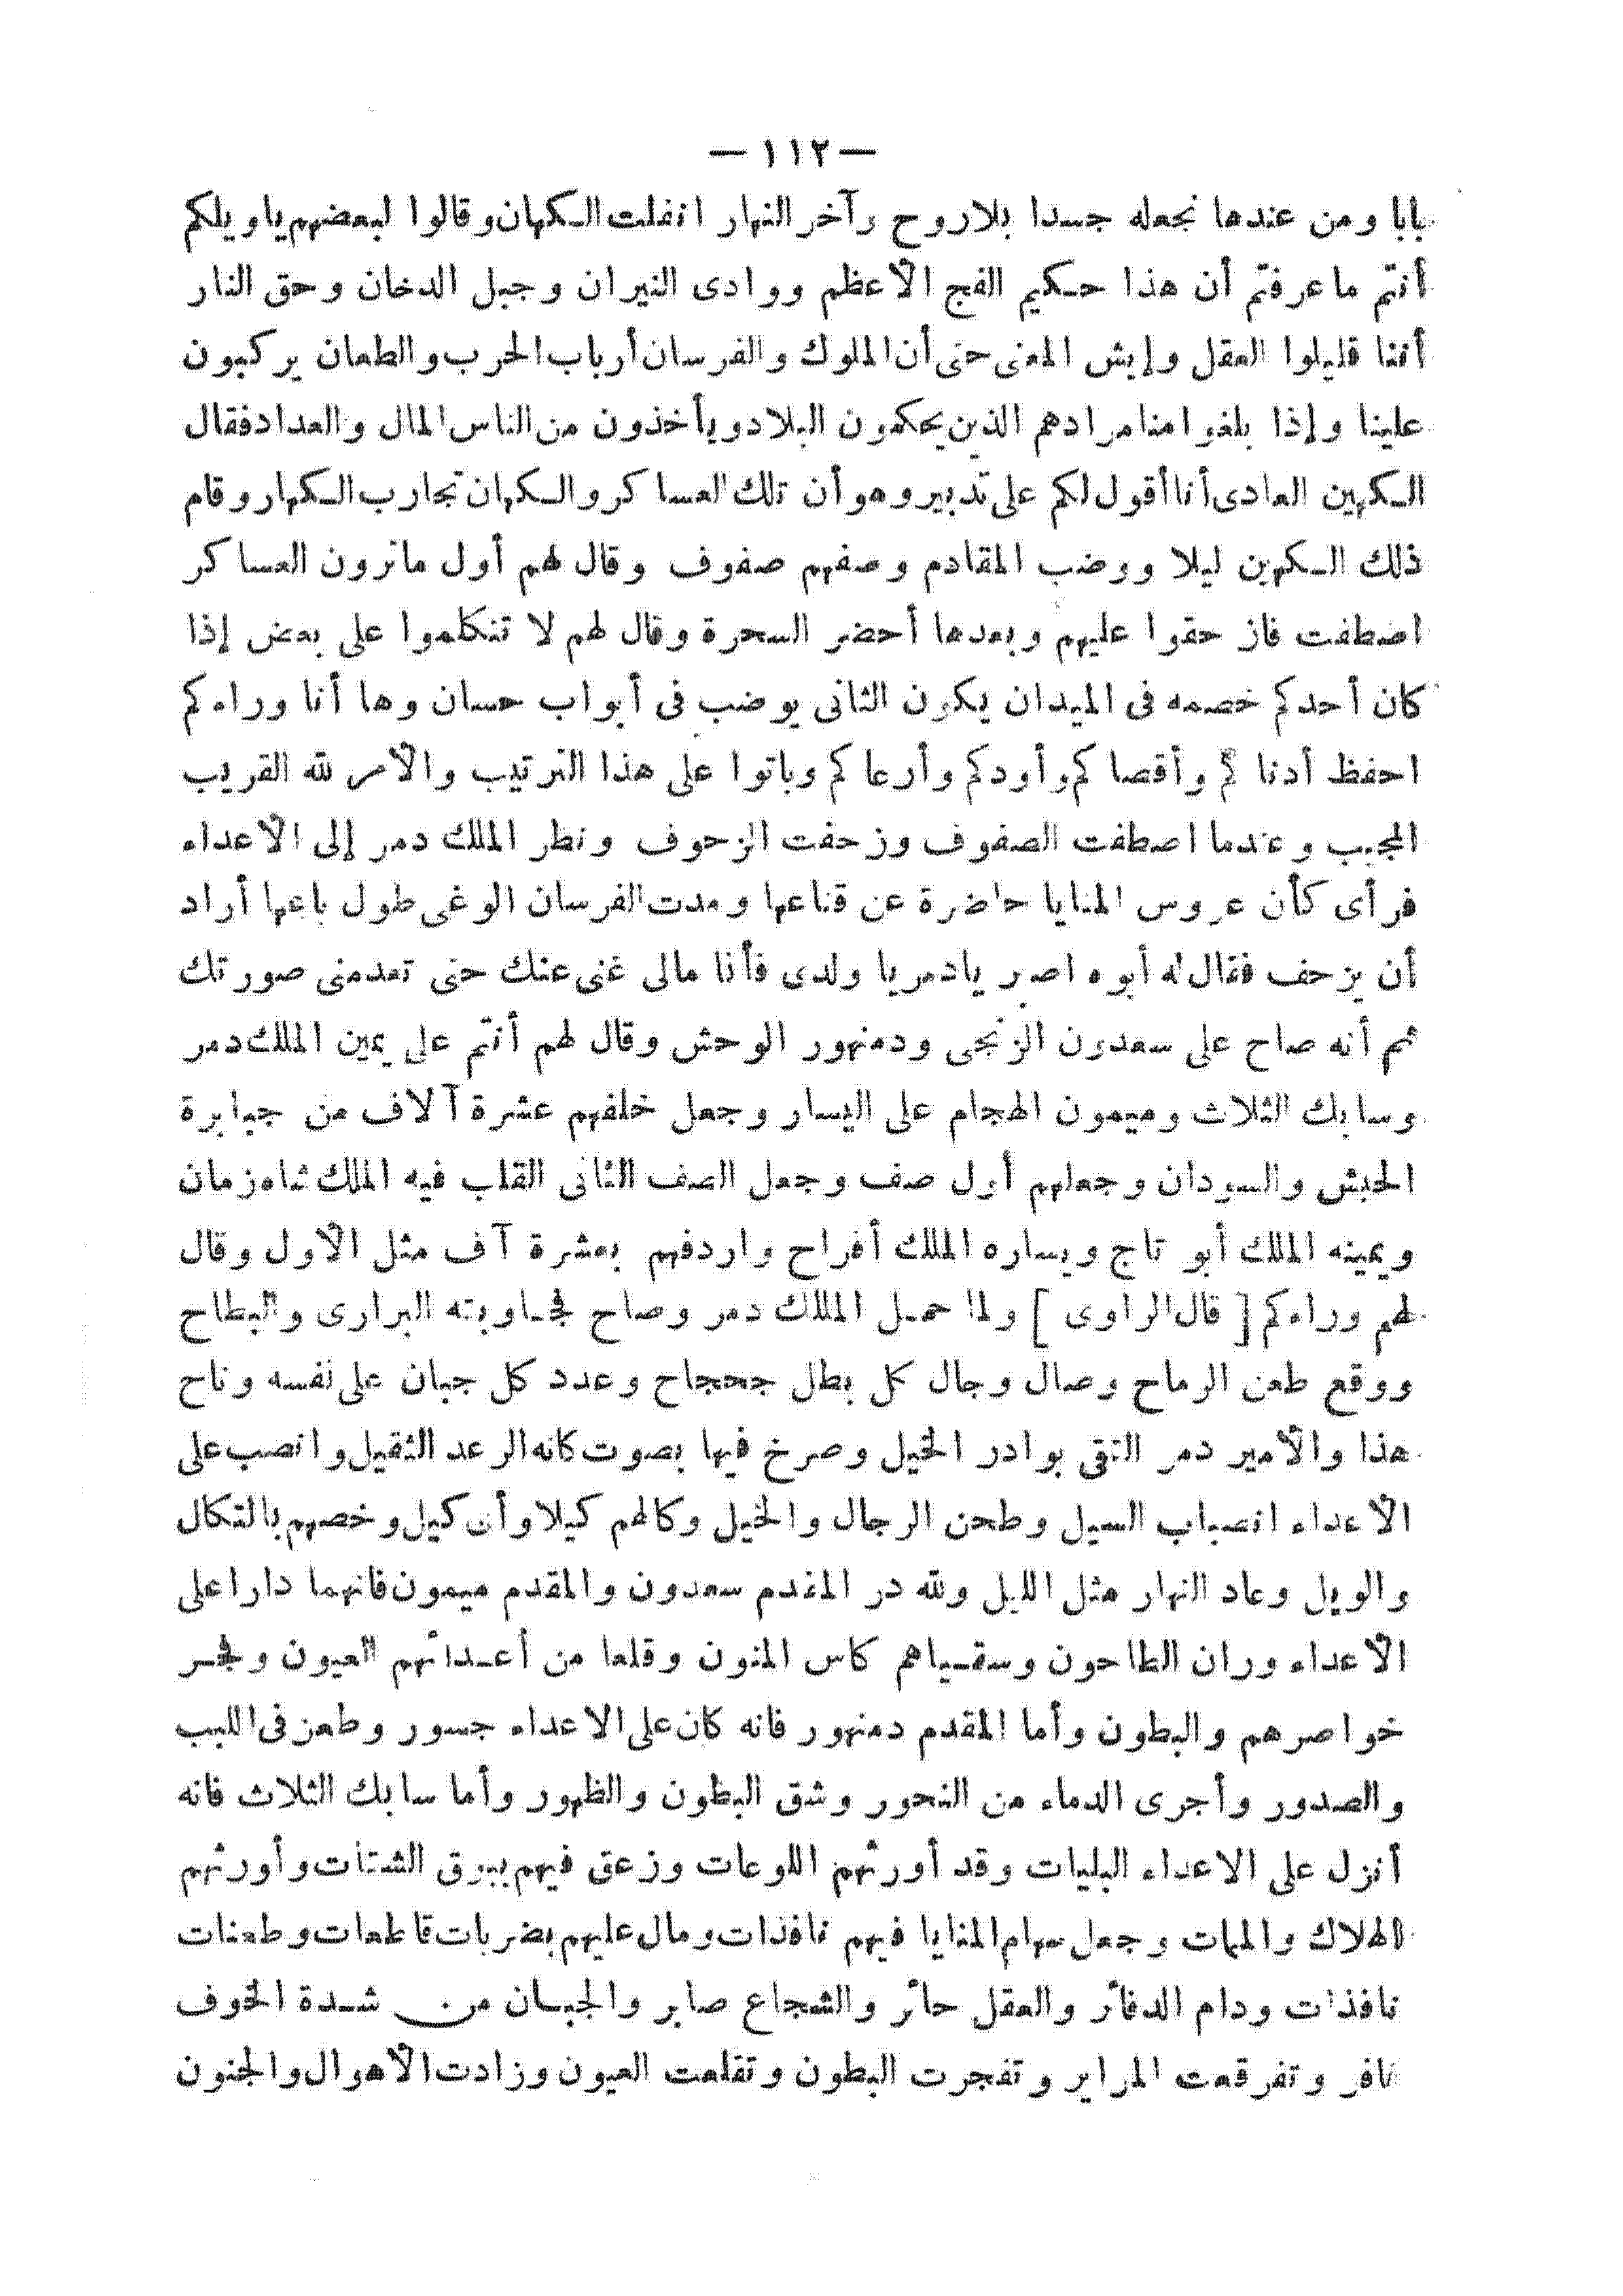 — ١١٢ —
بابا ومن عندها نجعله جسدا بلاروح وآخر النهار انفلت الكهان وقالوا لبعضهم ياويلكم
أنتم ماعرفتم أن هذا حكيم الفج الأعظم ووادى النيران وجبل الدخان وحق النار
أننا قليلوا العقل وإيش المعنى حتى أن الملوك والفرسان أرباب الحرب والطعان يركبون
علينا وإذا بلغوا منا مرادهم الذين يحكمون البلاد ويأخذون من الناس المال والعداد فقال
الكهين العادى أنا أقول لكم على تدبير وهو أن تلك العساكر والكهان تجارب الكهار وقام
ذلك الكهين ليلا ووضب المقادم وصفهم صفوف وقال لهم أول ماترون العساكر
اصطفت فاز حقوا عليهم وبعدها أحضر السحرة وقال لهم لا تتكلموا على بعض إذا
كان أحدكم خصمه فى الميدان يكون الثانى يوضب فى أبواب حسان وها أنا وراءكم
احفظ أدناكم وأقصاكم وأودكم وأرعاكم وباتوا على هذا الترتيب والأمر لله القريب
المجيب وعندما اصطفت الصفوف وزحفت الزحوف ونظر الملك دمر إلى الأعداء
فرأى كأن عروس المنايا حاضرة عن قناعها ومدت الفرسان الوغى طول باعها أراد
أن يزحف فقال له أبوه اصبر يادمر يا ولدى فأنا مالى غنى عنك حتى تعدمنى صورتك
ثم أنه صاح على سعدون الزنجى ودمنهور الوحش وقال لهم أنتم على يمين الملك دمر
وسابك الثلاث وميمون الهجام على اليسار وجعل خلفهم عشرة آلاف من جبابرة
الحبش والسودان وجعلهم أول صف وجعل الصف الثانى القلب فيه الملك شاه زمان
ويمينه الملك أبو تاج ويساره الملك أفراح واردفهم بعشرة آف مثل الأول وقال
لهم وراءكم [ قال الراوى ] ولما حمل الملك دمر وصاح فجاوبته البرارى والبطاح
ووقع طعن الرماح وصال وجال كل بطل جحجاح وعدد كل جبان على نفسه وناح
هذا والأمير دمر التقى بوادر الخيل وصرخ فيها بصوت كانه الرعد الثقيل وانصب على
الأعداء انصباب السيل وطحن الرجال والخيل وكالهم كيلا وأى كيل وخصهم بالتكال
والويل وعاد النهار مثل الليل ولله در المقدم سعدون والمقدم ميمون فانهما دارا على
الأعداء وران الطاحون وسقياهم كاس المنون وقلعا من أعدائهم العيون وفجر
خواصرهم والبطون وأما المقدم دمنهور فانه كان على الاعداء جسور وطعن فى اللبب
والصدور وأجرى الدماء من النحور وشق البطون والظهور وأما سابك الثلاث فانه
أنزل على الاعداء البليات وقد أورثهم اللوعات وزعق فيهم ببوق الشتات وأورثهم
الهلاك والمهات وجعل سهام المنايا فيهم نافذات ومال عليهم بضربات قاطعات وطعنات
نافذات ودام الدفائر والعقل حائر والشجاع صابر والجبان من شدة الخوف
نافر وتفرقعت المراير وتفجرت البطون وتقلعت العيون وزادت الأهوال والجنون